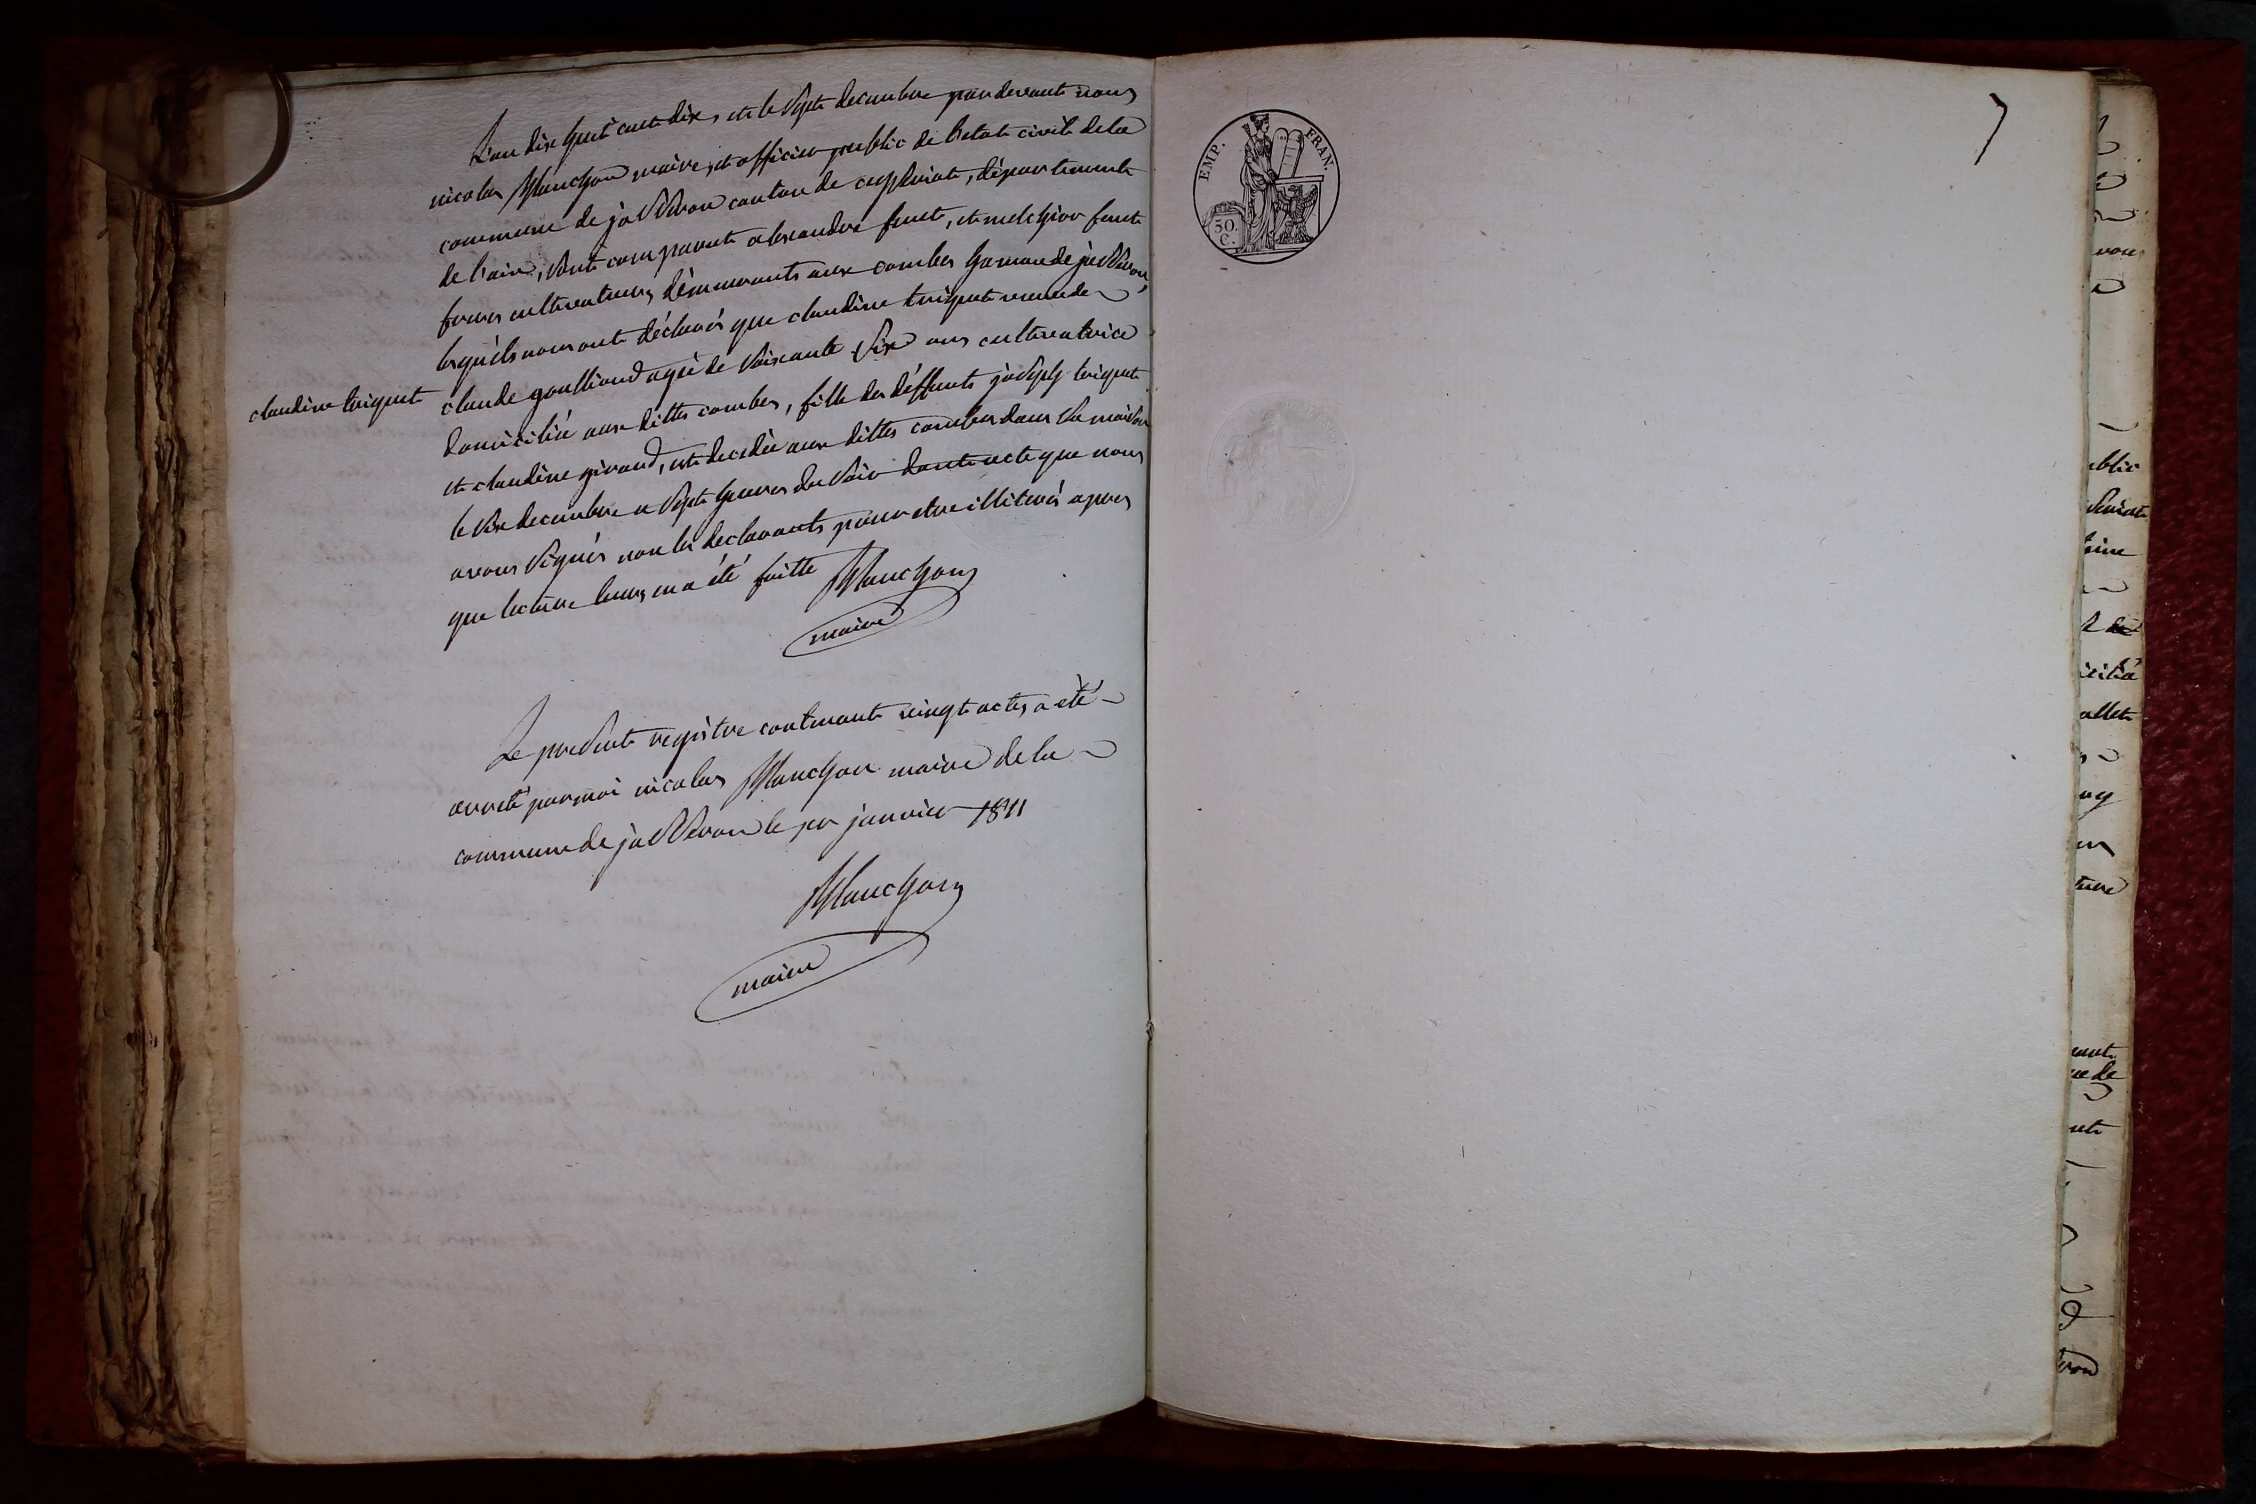 L'an dix huit cent dix, et le sept decembre par devant nous
nicolas Planchon maire, et officier public de l'etat civil de la
commune de jasseron canton de ceyseriat, département
de l'ain, sont comparut alexandre feuet, et melchior feuet
freres cultivateurs demeurants aux combes hamau de jasseron,
lesquels nous ont déclarés que claudine triquet veuve de
claude goulliond agée de soixante six ans cultivatrice
claudine triquet
domiciliée aux dittes combes, fille des déffunts joseph triquet
et claudine giraud, est decedée aux dittes combes dans sa maison
le six decembre a sept heures du soir dont acte que nous
avons signés non les declarants pour etre illiterés apres
que lecture leurs en a été faitte Planchon
maire
Le present registre contenant vingt actes a été
arreté par moi nicolas Planchon maire de la
commune de jasseron le per janvier 1811
Planchon
maire
EMP. FRAN.
50.
C.
7